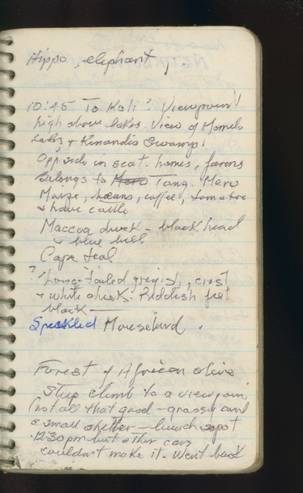 Hippo, elephant,
10:45 To Koli? Viewpoint
high above lakes. View of Momela
Lakes & Kinandia Swamp.
Opposite on scat. homes, farms
belongs to Tang. Meru
Maize, beans, coffee, tomatoe
& have cattle
Maccoa duck - black head
& blue bill
Cape teal
? Long-tailed greyish, crest
& white cheek. Reddish feet
black —
Speckled Mousebird.
Forest of African olive
Steep climb to a viewpoint
(not all that good - grassy and
a small shelter - lunch spot
12:30pm but other cars
couldn't make it. Went back